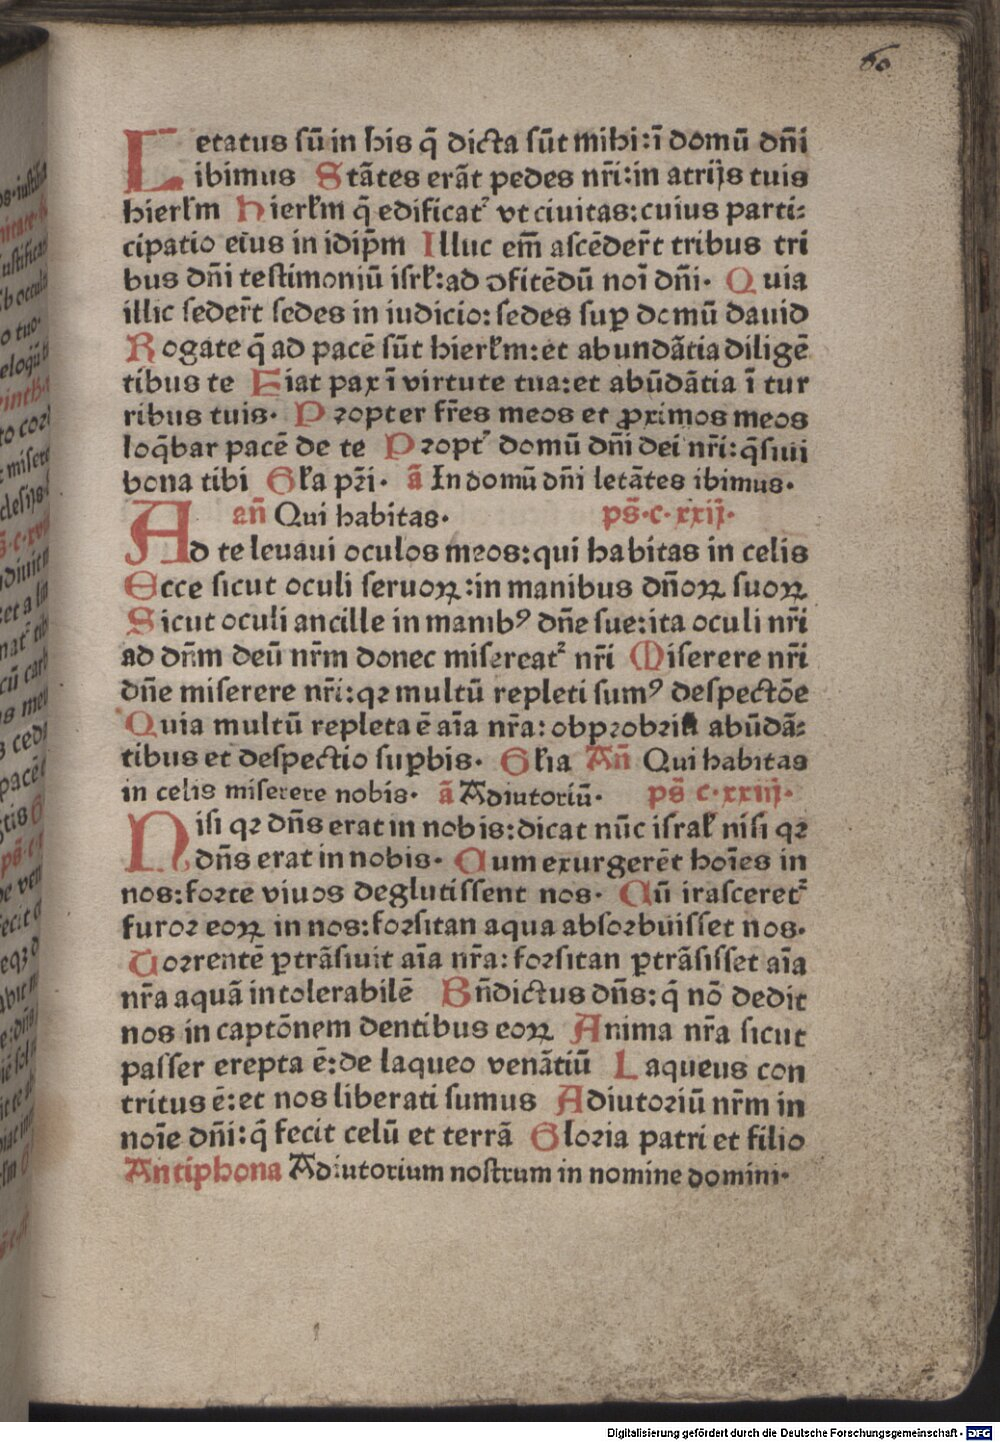 60
Letatus sū in his q̄ dicta sūt mihi:ī domū dn̄i
ibimus Stātes erāt pedes nr̄i:in atrijs tuis
hierl̄m Hierl̄m q̄ edificatᷣ vt ciuitas:cuius parti:
cipatio eius in idip̄m Illuc em̄ ascēder̄t tribus tri
bus dn̄i testimoniū isrl̄:ad ↄfitēdū noī dn̄i. Quia
illic seder̄t sedes in iudicio:sedes suꝑ domū dauid
Rogate q̄ ad pacē sūt hierl̄m:et abundātia diligē
tibus te Fiat pax ī virtute tua:et abūdātia ī tur
ribus tuis. Propter fr̄es meos et ꝓximos meos
loq̄bar pacē de te Proptᷣ domū dn̄i dei nr̄i:q̄siui
bona tibi Gl̄a pr̄i. ā In domū dn̄i letātes ibimus.
an̄ Qui habitas. ps̄.c.xxij.
Ad te leuaui oculos meos:qui habitas in celis
Ecce sicut oculi seruoꝝ:in manibus dn̄oꝝ suoꝝ
Sicut oculi ancille in manibꝰ dn̄e sue:ita oculi nr̄i
ad dn̄m deū nr̄m donec misereatᷣ nr̄i Miserere nr̄i
dn̄e miserere nr̄i:qꝛ multū repleti sumꝰ despectōe
Quia multū repleta ē aīa nr̄a:obprobriū abūdā:
tibus et despectio suꝑbis. Gl̄ia An̄ Qui habitas
in celis miserere nobis. ā Adiutoriū. ps̄ c.xxiij.
Nisi qꝛ dn̄s erat in nobis:dicat nūc isral̄ nisi qꝛ
dn̄s erat in nobis. Cum exurgerēt hoīes in
nos:forte viuos deglutissent nos. Cū irasceretᷣ
furor eoꝝ in nos:forsitan aqua absorbuisset nos.
Torrentē ꝑtrāsiuit aīa nr̄a:forsitan ꝑtrāsisset aīa
nr̄a aquā intolerabilē Bn̄dictus dn̄s:q̄ nō dedit
nos in captōnem dentibus eoꝝ Anima nr̄a sicut
passer erepta ē:de laqueo venātiū Laqueus con
tritus ē:et nos liberati sumus Adiutoriū nr̄m in
noīe dn̄i:q̄ fecit celū et terrā Gloria patri et filio
Antiphona Adiutorium nostrum in nomine domini.
Digitalisierung gefördert durch die Deutsche Forschungsgemeinschaft - DFG